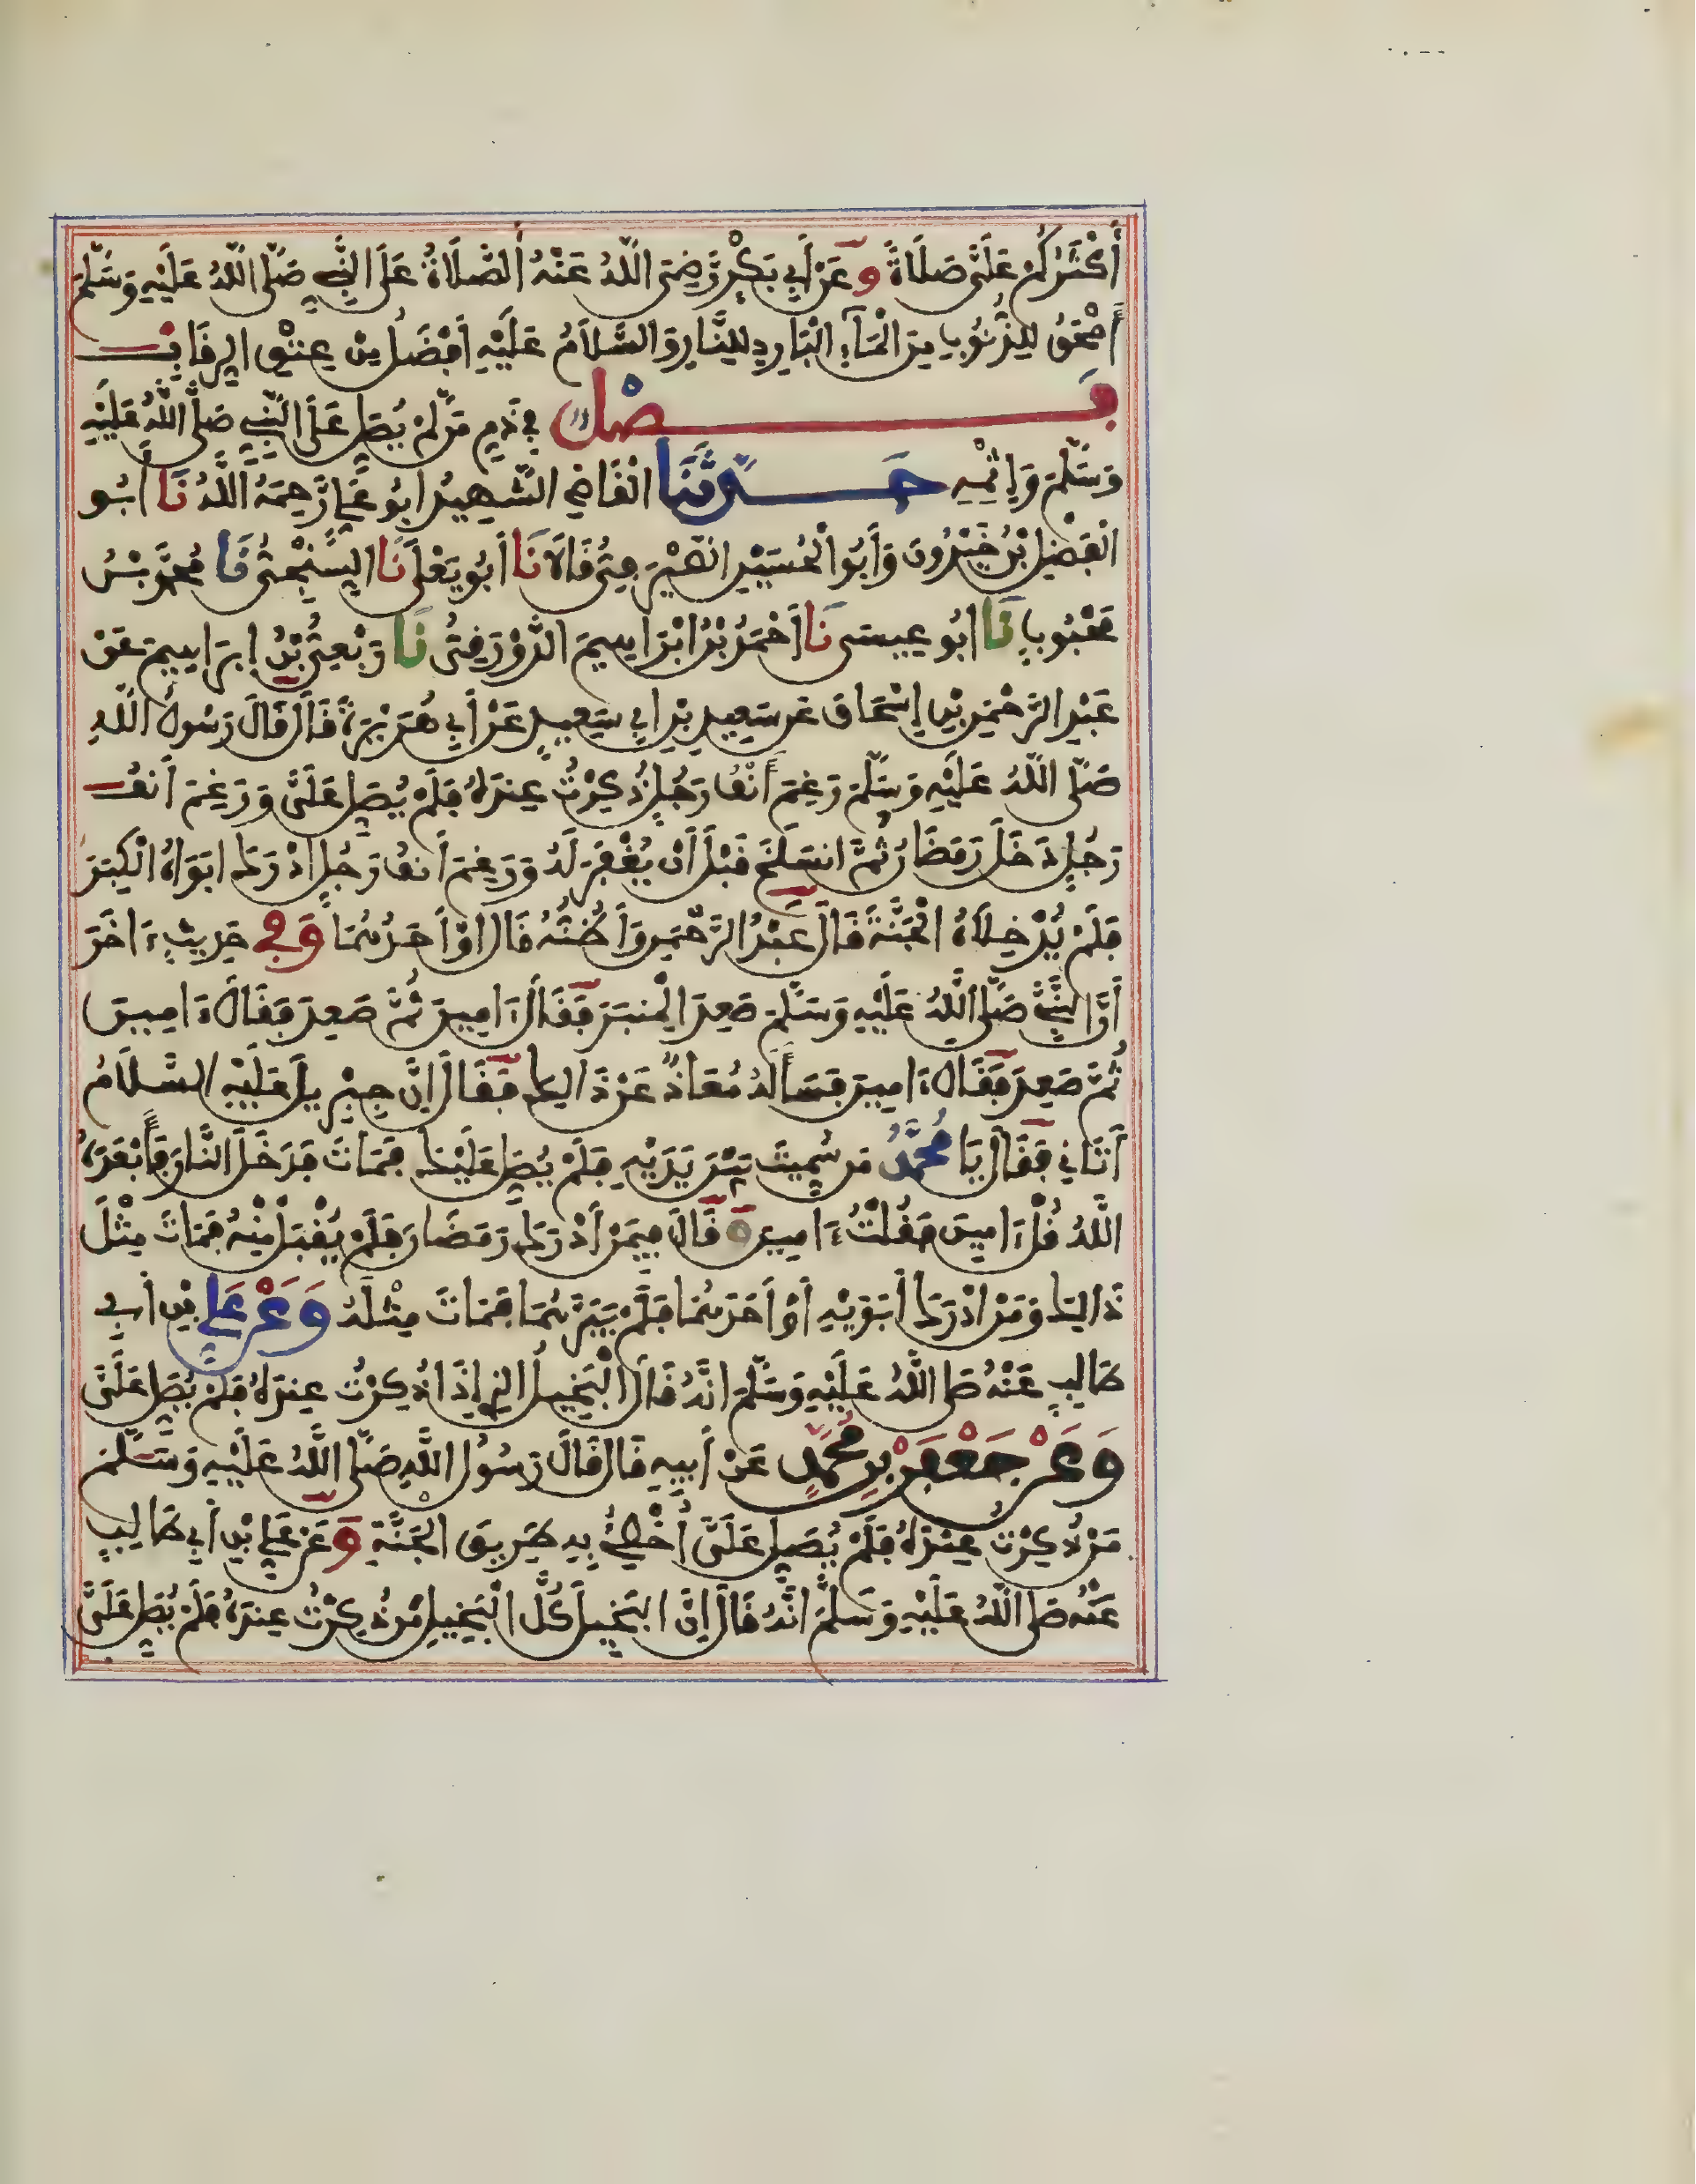 أَكْثَرُكُمْ عَلَيَّ صَلَاةً وَعَنْ أَبِي بَكْرٍ رَضِيَ اللَّهُ عَنْهُ الصَّلَاةُ عَلَى النَّبِيِّ صَلَّى اللَّهُ عَلَيْهِ وَسَلَّمَ
أَمْحَقُ لِلذُّنُوبِ مِنَ الْمَآءِ الْبَارِدِ لِلنَّارِ وَالسَّلَامُ عَلَيْهِ أَفْضَلُ مِنْ عِتْقِ الرِّقَابِ
فَصْلٌ فِي ذَمِّ مَن لَّمْ يُصَلِّ عَلَى النَّبِيِّ صَلَّى اللَّهُ عَلَيْهِ
وَسَلَّمَ وَإِثْمِهِ حَدَّثَنَا الْقَاضِي الشَّهِيدُ أَبُو عَلِيٍّ رَحِمَهُ اللَّهُ نَا أَبُو
الْفَضْلِ بْنُ خَيْرُونَ وَأَبُو الْحُسَيْنِ الصَّيْرَفِيُّ قَالَا نَا أَبُو يَعْلَى نَا السِّنْجِيُّ نَا مُحَمَّدُ بْنُ
مَحْبُوبٍ نَا أَبُو عِيسَى نَا أَحْمَدُ بْنُ إِبْرَاهِيمَ الدَّوْرَقِيُّ نَا رِبْعِيُّ بْنُ إِبْرَاهِيمَ عَنْ
عَبْدِ الرَّحْمَنِ بْنِ إِسْحَاقَ عَن سَعِيدِ بْنِ أَبِي سَعِيدٍ عَنْ أَبِي هُرَيْرَةَ قَالَ قَالَ رَسُولُ اللَّهِ
صَلَّى اللَّهُ عَلَيْهِ وَسَلَّمَ رَغِمَ أَنْفُ رَجُلٍ ذُكِرْتُ عِندَهُ فَلَمْ يُصَلِّ عَلَيَّ وَرَغِمَ أَنفُ
رَجُلٍ دَخَلَ رَمَضَانُ ثُمَّ انسَلَخَ قَبْلَ أَنْ يُغْفَرَ لَهُ وَرَغِمَ أَنفُ رَجُلٍ أَدْرَكَ أَبَوَاهُ الْكِبَرَ
فَلَمْ يُدْخِلَاهُ الْجَنَّةَ قَالَ عَبْدُ الرَّحْمَنِ وَأَظُنُّهُ قَالَ أَوْ أَحَدُهُمَا وَفِي حَدِيثٍ ءَاخَرَ
أَنَّ النَّبِيَّ صَلَّى اللَّهُ عَلَيْهِ وَسَلَّمَ صَعِدَ الْمِنبَرَ فَقَالَ ءَامِينَ ثُمَّ صَعِدَ فَقَالَ ءَامِينَ
ثُمَّ صَعِدَ فَقَالَ ءَامِينَ فَسَأَلَهُ مُعَاذٌ عَنْ ذَالِكَ فَقَالَ إِنَّ جِبْرِيلَ عَلَيْهِ السَّلَامُ
أَتَانِي فَقَالَ يَا مُحَمَّدُ مَن سُمِّيتَ بَيْنَ يَدَيْهِ فَلَمْ يُصَلِّ عَلَيْكَ فَمَاتَ فَدَخَلَ النَّارَ فَأَبْعَدَهُ
اللَّهُ قُلْ ءَامِينَ فَقُلْتُ ءَامِينَ قَالَ فِيمَنْ أَدْرَكَ رَمَضَانَ فَلَمْ يُقْبَلْ مِنْهُ فَمَاتَ مِثْلَ
ذَالِكَ وَمَنْ أَدْرَكَ أَبَوَيْهِ أَوْ أَحَدَهُمَا فَلَمْ يَبَرَّهُمَا فَمَاتَ مِثْلَهُ وَعَنْ عَلِيِّ بْنِ أَبِي
طَالِبٍ عَنْهُ صَلَّى اللَّهُ عَلَيْهِ وَسَلَّمَ أَنَّهُ قَالَ الْبَخِيلُ الذِي إِذَا ذُكِرْتُ عِندَهُ فَلَمْ يُصَلِّ عَلَيَّ
وَعَنْ جَعْفَرِ بْنِ مُحَمَّدٍ عَنْ أَبِيهِ قَالَ قَالَ رَسُولُ اللَّهِ صَلَّى اللَّهُ عَلَيْهِ وَسَلَّمَ
مَن ذُكِرْتُ عِندَهُ فَلَمْ يُصَلِّ عَلَيَّ أُخْطِئَ بِهِ طَرِيقَ الْجَنَّةِ وَعَنْ عَلِيِّ بْنِ أَبِي طَالِبٍ
عَنْهُ صَلَّى اللَّهُ عَلَيْهِ وَسَلَّمَ أَنَّهُ قَالَ إِنَّ الْبَخِيلَ كُلَّ الْبَخِيلِ مَن ذُكِرْتُ عِندَهُ فَلَمْ يُصَلِّ عَلَيَّ